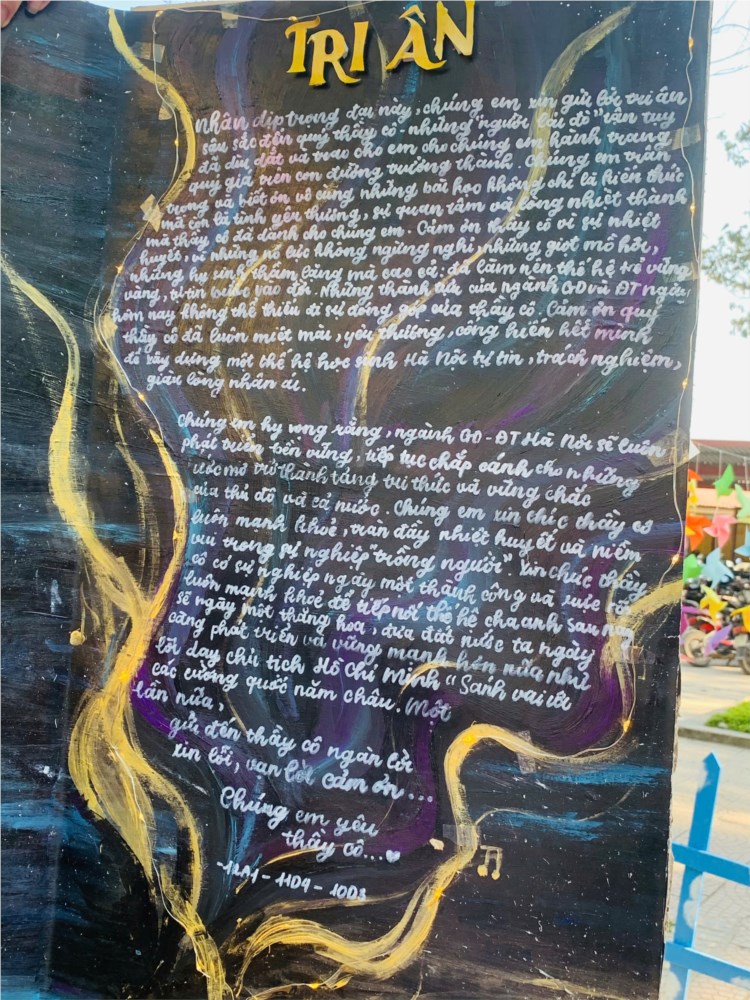 TRI ÂN
Nhân dịp trọng đại này, chúng em xin gửi lời tri ân
sâu sắc đến quý thầy cô - những "người lái đò" tận tụy
đã dìu dắt và trao cho em cho chúng em hành trang
quý giá trên con đường trưởng thành. Chúng em trân
trọng và biết ơn vô cùng những bài học không chỉ là kiến thức
mà còn là tình yêu thương, sự quan tâm và lòng nhiệt thành
mà thầy cô đã dành cho chúng em. Cảm ơn thầy cô vì sự nhiệt
huyết, vì những nỗ lực không ngừng nghỉ, những giọt mồ hôi,
những hy sinh thầm lặng mà cao cả: đã làm nên thế hệ trẻ vững
vàng, tự tin bước vào đời. Những thành tựu của ngành GD và ĐT ngày
hôm nay không thể thiếu đi sự đóng góp của thầy cô. Cảm ơn quý
thầy cô đã luôn miệt mài, yêu thương, cống hiến hết mình
để xây dựng một thế hệ học sinh Hà Nội tự tin, trách nghiệm,
giàu lòng nhân ái.
Chúng em hy vọng rằng, ngành GD - ĐT Hà Nội sẽ luôn
phát triển bền vững, tiếp tục chắp cánh cho những
ước mơ trở thành tảng tri thức và vững chắc
của thủ đô và cả nước. Chúng em xin chúc thầy cô
luôn mạnh khoẻ, tràn đầy nhiệt huyết và niềm
vui trong sự nghiệp "trồng người". Xin chúc thầy
cô có sự nghiệp ngày một thành công và rực rỡ
luôn mạnh khoẻ để tiếp nối thế hệ cha anh sau này
sẽ ngày một thăng hoa, đưa đất nước ta ngày
càng phát triển và vững mạnh hơn nữa như
lời dạy chủ tịch Hồ Chí Minh "Sánh vai với
các cường quốc năm châu. Một
lần nữa,
gửi đến thầy cô ngàn lời
xin lỗi, vạn lời cảm ơn...
Chúng em yêu
thầy cô...
-12A1 - 11D4 - 10D3